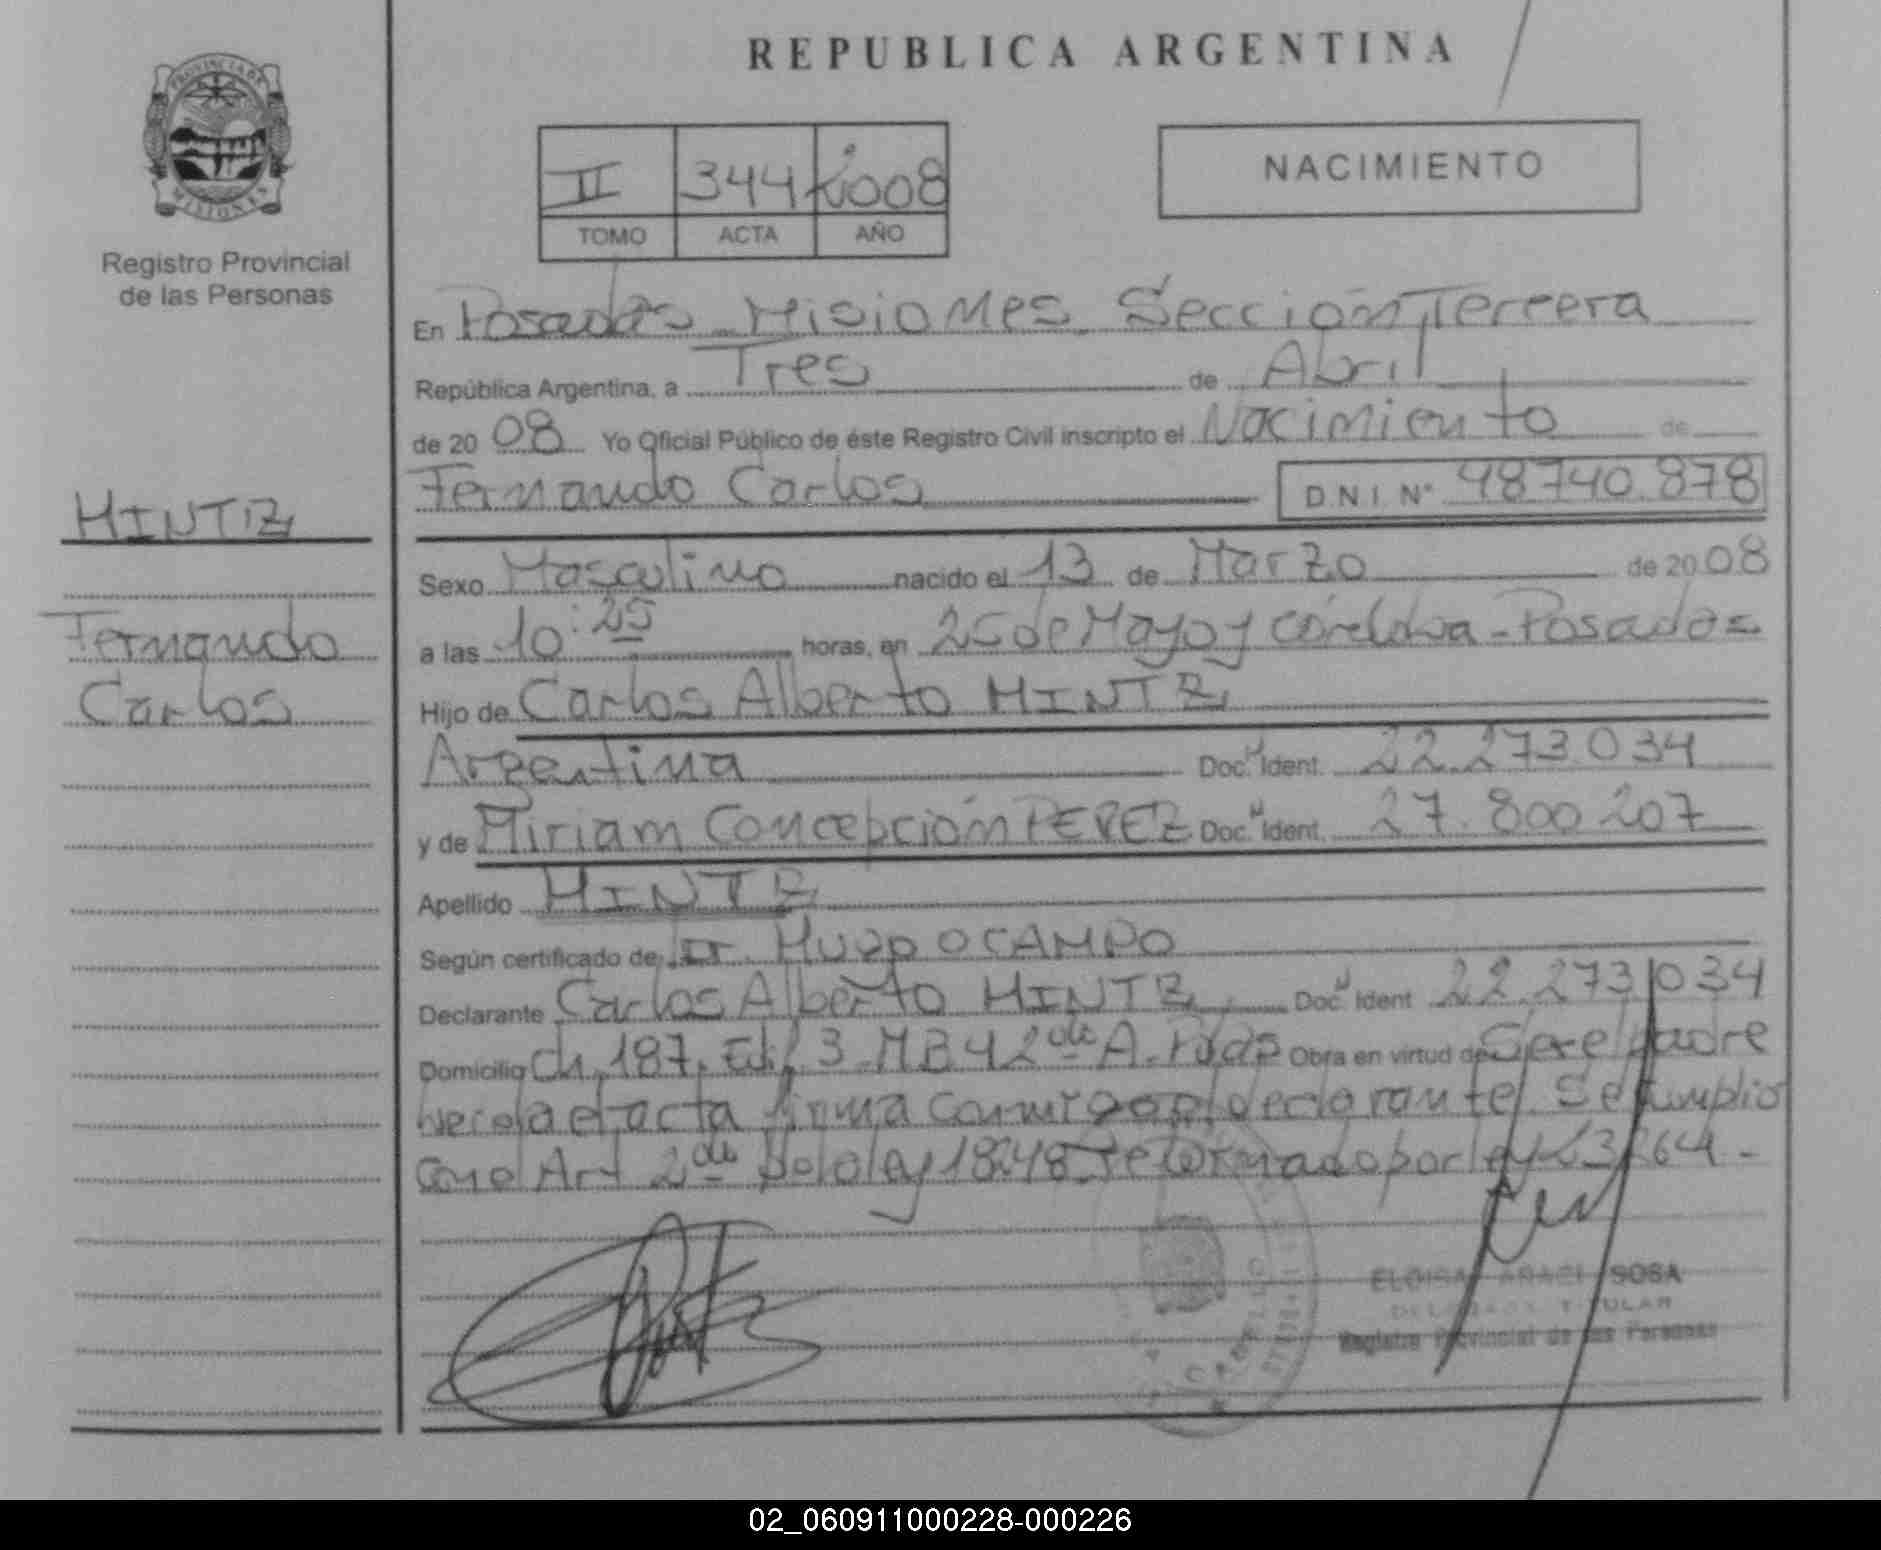 REPUBLICA ARGENTINA
PROVINCIA DE
MISIONES
Registro Provincial
de las Personas
II 344 2008
TOMO ACTA AÑO
NACIMIENTO
En Posadas Misiones Sección Tercera
República Argentina, a Tres de Abril
de 20 08 Yo Oficial Público de éste Registro Civil inscripto el Nacimiento de
Fernando Carlos D.N.I. N° 48740.878
HINTZ
Fernando
Carlos
Sexo Masculino nacido el 13 de Marzo de 20 08
a las 10:25 horas, en 25 de Mayo y Córdova - Posadas
Hijo de Carlos Alberto HINTZ
Argentina Doc. Ident. 22.273.034
y de Miriam Concepción PEREZ Doc. Ident. 27.800.207
Apellido HINTZ
Según certificado de Hugo OCAMPO
Declarante Carlos Alberto HINTZ Doc. Ident 22.273.034
Domicilio Ch. 187, Edif 3 MB 4 2do A. Pdas Obra en virtud de Ser el padre
leida el acta firma conmigo el declarante. Se cumplio
con el Art 2do de la ley reformado por ley 23264.-
ELOISA ARACI SOSA
DELEGADA TITULAR
Registro Provincial de las Personas
02_060911000228-000226